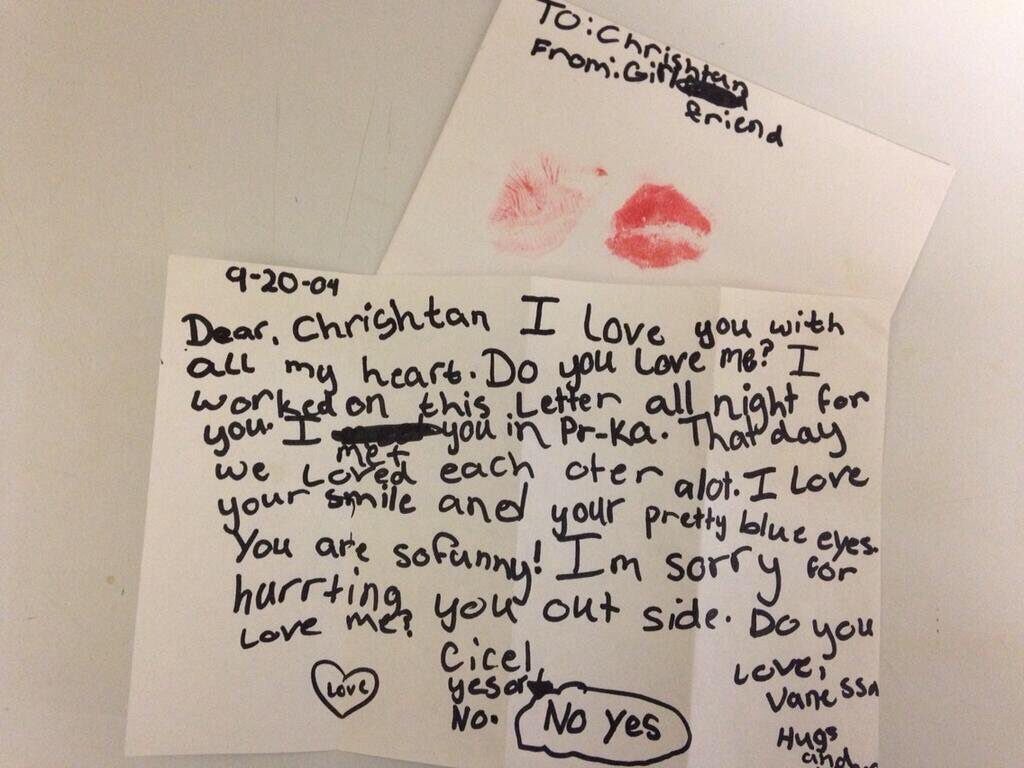 TO: Chrishtan
From: Girl
friend
9-20-04
Dear, Chrishtan I Love you with
all my heart. Do you Love me? I
worked on this Letter all night for
you. I met you in Pr-Ka. That day
we Loved each oter alot. I Love
your smile and your pretty blue eyes.
You are so funny! I'm sorry for
hurrting you out side. Do you
Love me?
Cicel
yes or
No.
Love
No yes
Love,
Vanessa
Hugs
and